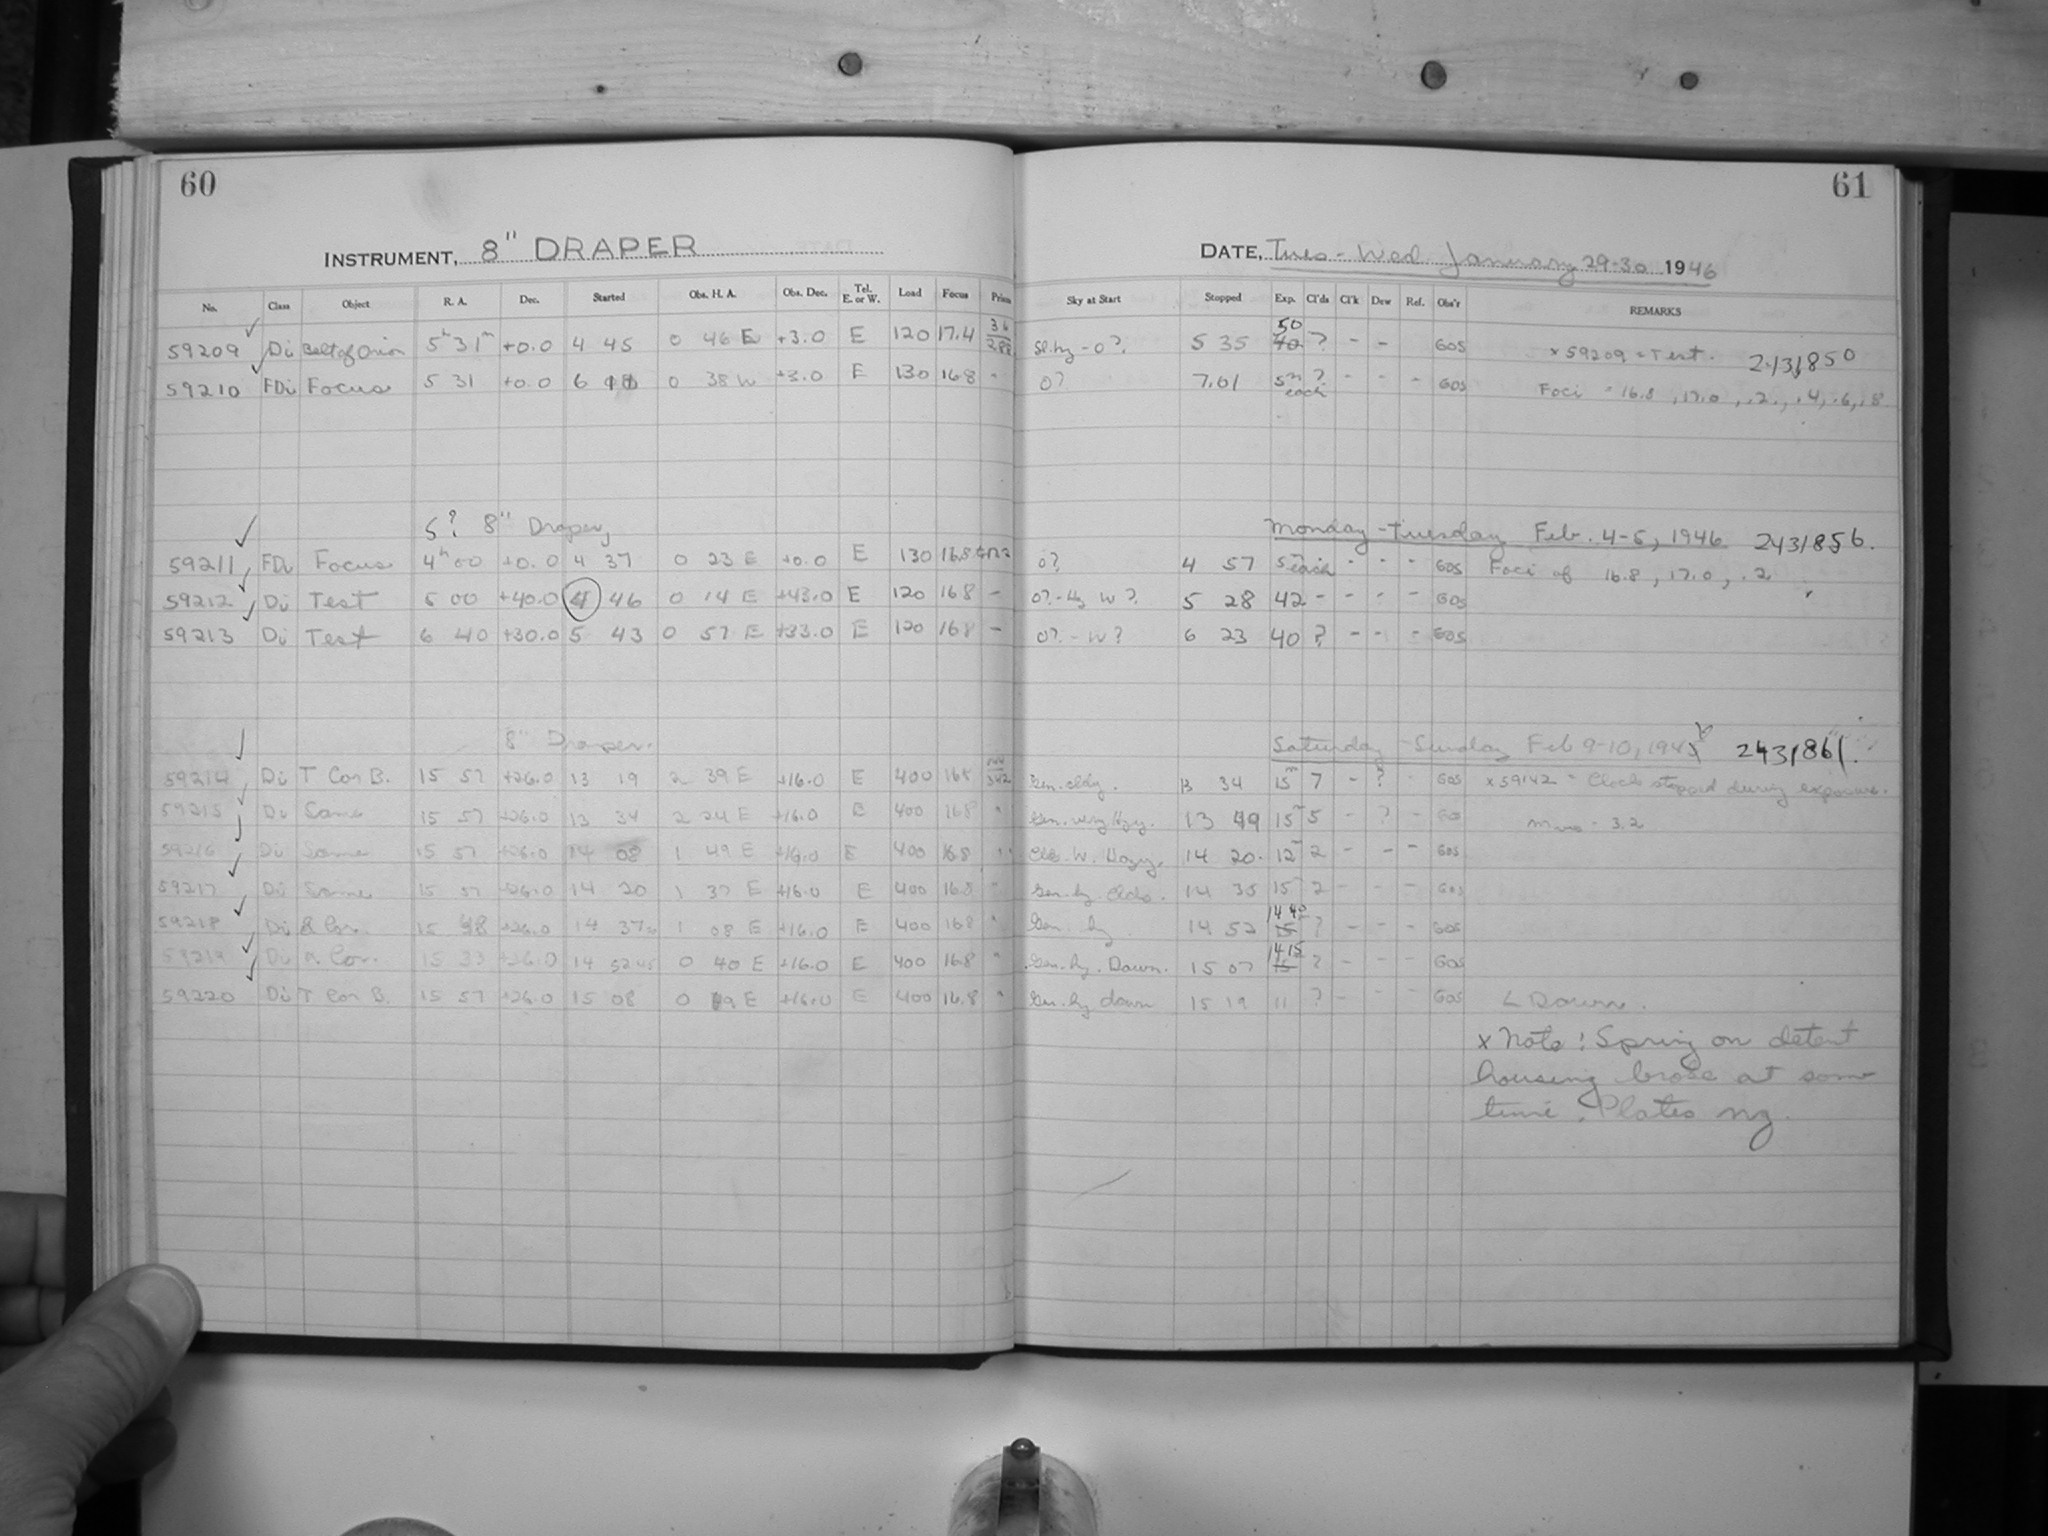 60
61
INSTRUMENT, 8" DRAPER
DATE, Tues - Wed January 29-30 1946
No. Class Object R. A. Dec. Started Obs. H. A. Obs. Dec. Tel. E. or W. Load Focus Prism Sky at Start Stopped Exp. Cl'ds Cl'k Dew Ref. Obs'r REMARKS
59209 Di Belt of Orion 5h 31m +0.0 4 45 0 46 E +3.0 E 120 17.4 Sl. hy - 0? 5 35 50 40 ? - - GOS x 59209 = Test. 2431850
59210 FDi Focus 5 31 +0.0 6 0 38 W +3.0 E 130 16.8 " 0? 7.01 5m each ? - - - GOS Foci = 16.8, 17.0, .2, .4, .6, .8
5? 8" Draper
Monday - Tuesday Feb. 4-5, 1946 2431856.
59211 FDi Focus 4h 00 +0.0 4 37 0 23 E +0.0 E 130 16.8 0? 4 57 5m each - - - GOS Foci of 16.8, 17.0, .2
59212 Di Test 5 00 +40.0 4 46 0 14 E +43.0 E 120 16.8 - 0? - Hy W? 5 28 42 - - - - GOS
59213 Di Test 6 40 +30.0 5 43 0 57 E +33.0 E 120 16.8 - 0? - W? 6 23 40 ? - - - GOS
8" Draper.
Saturday - Sunday Feb 9-10, 194 2431861.
59214 Di T Cor B. 15 57 +26.0 13 19 2 39 E +16.0 E 400 16.8 Gen. cldy. 13 34 15m 7 - ? - GOS x 59142 = Clock stopped during exposure.
59215 Di Same 15 57 +26.0 13 34 2 24 E +16.0 E 400 16.8 " Gen. very Hzy. 13 49 15m 5 - ? - GOS m - 3.2
59216 Di Same 15 57 +26.0 14 08 1 49 E +16.0 E 400 16.8 " Clds. W. Hazy. 14 20 12m 2 - - - GOS
59217 Di Same 15 57 +26.0 14 20 1 37 E +16.0 E 400 16.8 " Gen. hy. Clds. 14 35 15 2 - - - GOS
59218 Di Cor. 15 48 +26.0 14 37 1 08 E +16.0 E 400 16.8 " Gen. hy 14 52 14 40 15 ? - - - GOS
59219 Di Cor. 15 33 +26.0 14 52 45 0 40 E +16.0 E 400 16.8 " Gen. hy. Dawn. 15 07 14 15 15 ? - - - GOS
59220 Di T Cor B. 15 57 +26.0 15 08 0 49 E +16.0 E 400 16.8 " Gen. hy dawn 15 19 11 ? - - - GOS L Dawn.
x Note: Spring on detent
housing broke at some
time. Plates ng.